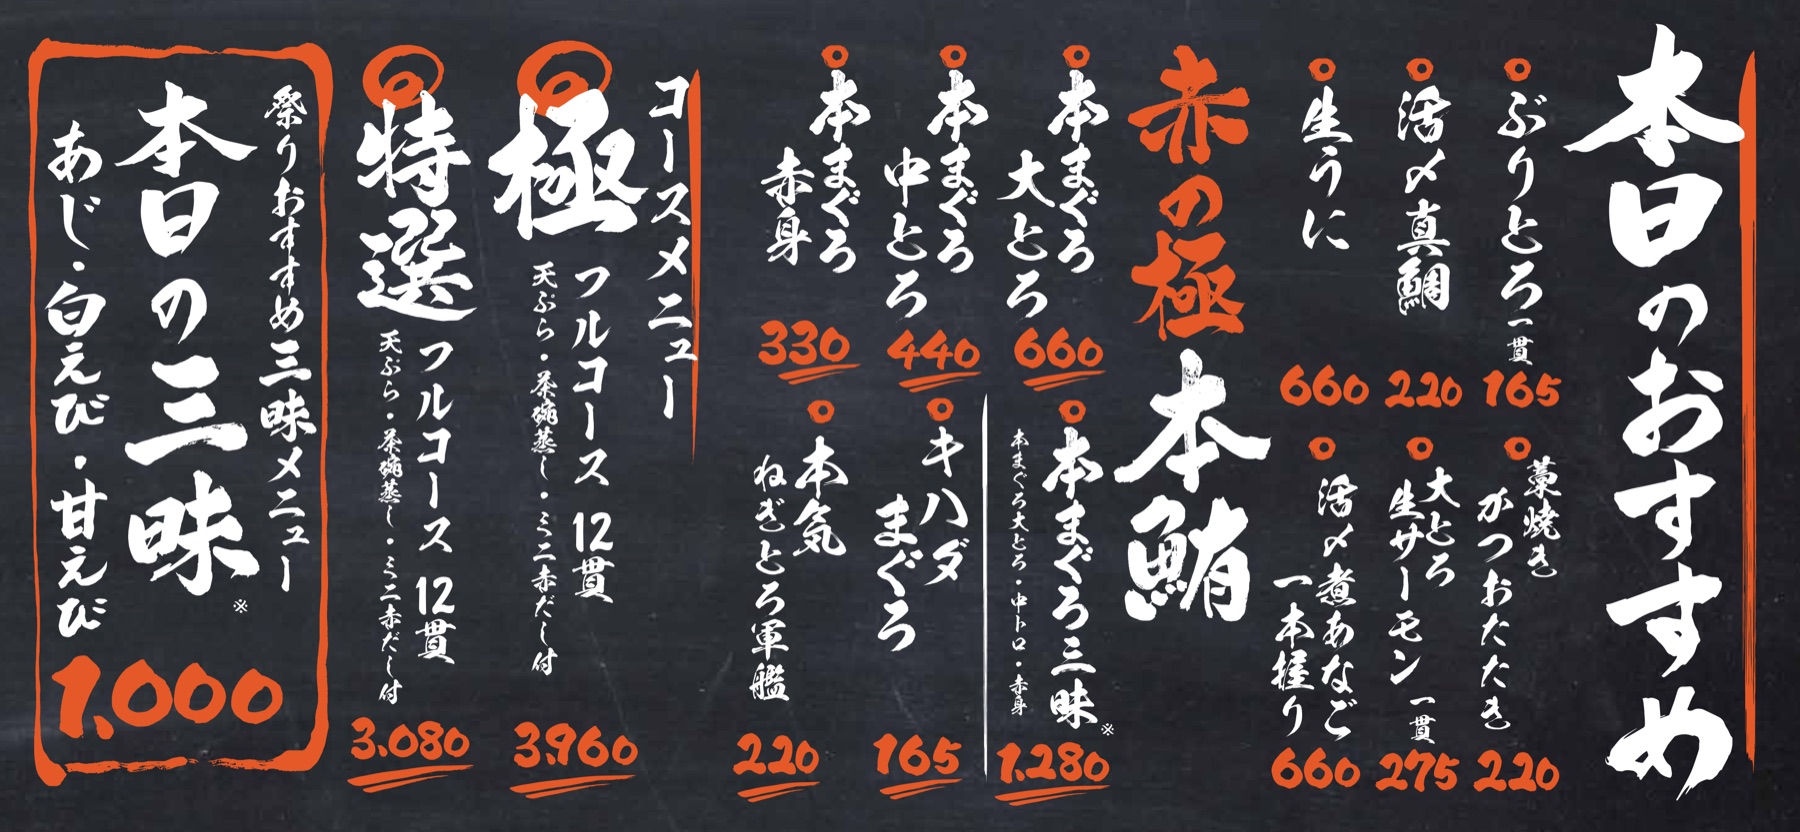 本日のおすすめ
ぶりとろ 一貫
165
活〆真鯛
220
生うに
660
藁焼き
かつおたたき
220
大とろ
生サーモン 一貫
275
活〆煮あなご
一本握り
660
赤の極 本鮪
本まぐろ
大とろ
660
本まぐろ
中とろ
440
本まぐろ
赤身
330
本まぐろ三昧※
本まぐろ大とろ・中トロ・赤身
1.280
キハダ
まぐろ
165
本気
ねぎとろ軍艦
220
コースメニュー
極
フルコース 12貫
天ぶら・茶碗蒸し・ミニ赤だし付
3.960
特選
フルコース 12貫
天ぶら・茶碗蒸し・ミニ赤だし付
3.080
祭りおすすめ三昧メニュー
本日の三昧※
あじ・白えび・甘えび
1.000